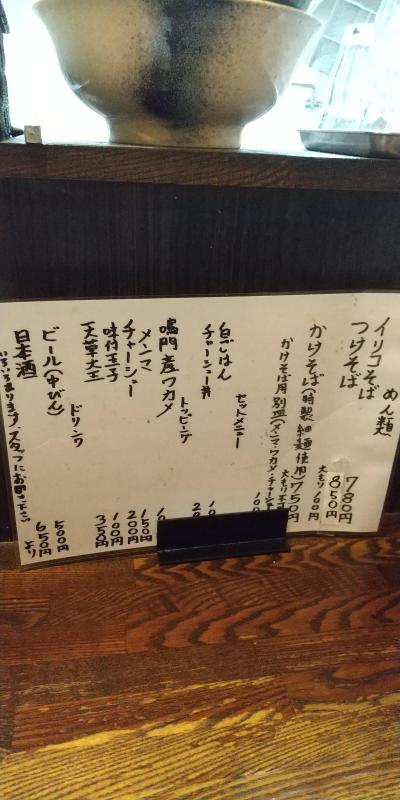 めん類
イリコそば 780円
つけそば 850円
大もり100円
かけそば(特製細麺使用) 750円
大もり不可
かけそば用別皿(メンマ・ワカメ・チャーシュー
セットメニュー
白ごはん
チャーシュー丼
トッピング
鳴門産ワカメ
メンマ 150円
チャーシュー 200円
味付玉子 100円
天草大王 350円
ドリンク
ビール(中びん) 500円
日本酒 650円より
いろいろあります。スタッフにお聞き下さい